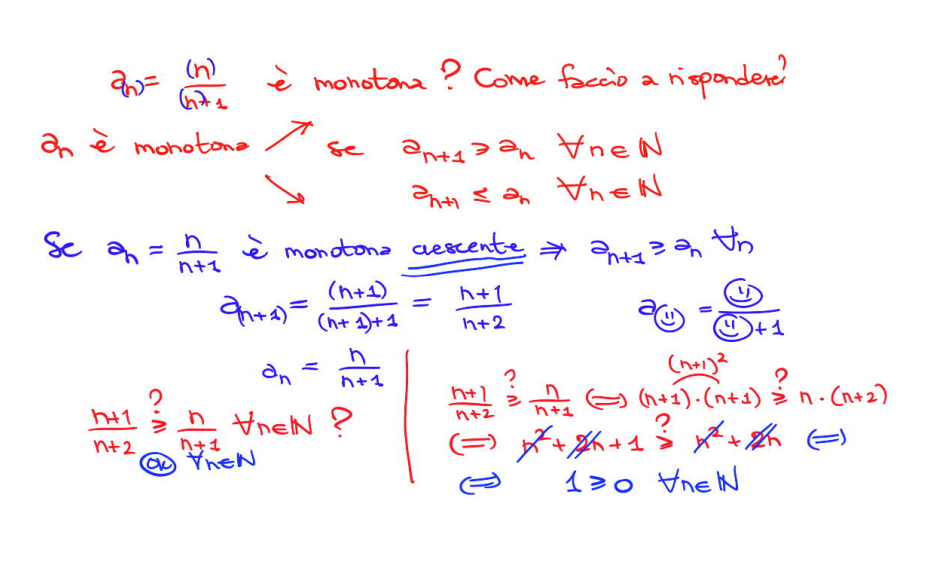 a(n) = (n)/(n)+1 è monotona? Come faccio a rispondere?
an è monotona ↗ se an+1 ≥ an ∀n∈ℕ
↘ an+1 ≤ an ∀n∈ℕ
Se an = n/n+1 è monotona crescente ⇒ an+1 ≥ an ∀n
a(n+1) = (n+1)/(n+1)+1 = n+1/n+2
a☺ = ☺/☺+1
an = n/n+1
n+1/n+2 ≥? n/n+1 ∀n∈ℕ ?
OK ∀n∈ℕ
(n+1)²
n+1/n+2 ≥? n/n+1 ⇔ (n+1)·(n+1) ≥? n·(n+2)
⇔ n²+2n+1 ≥? n²+2n ⇔
⇔ 1 ≥ 0 ∀n∈ℕ